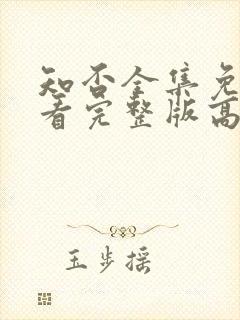 知否全集免
看完整版高
玉步摇